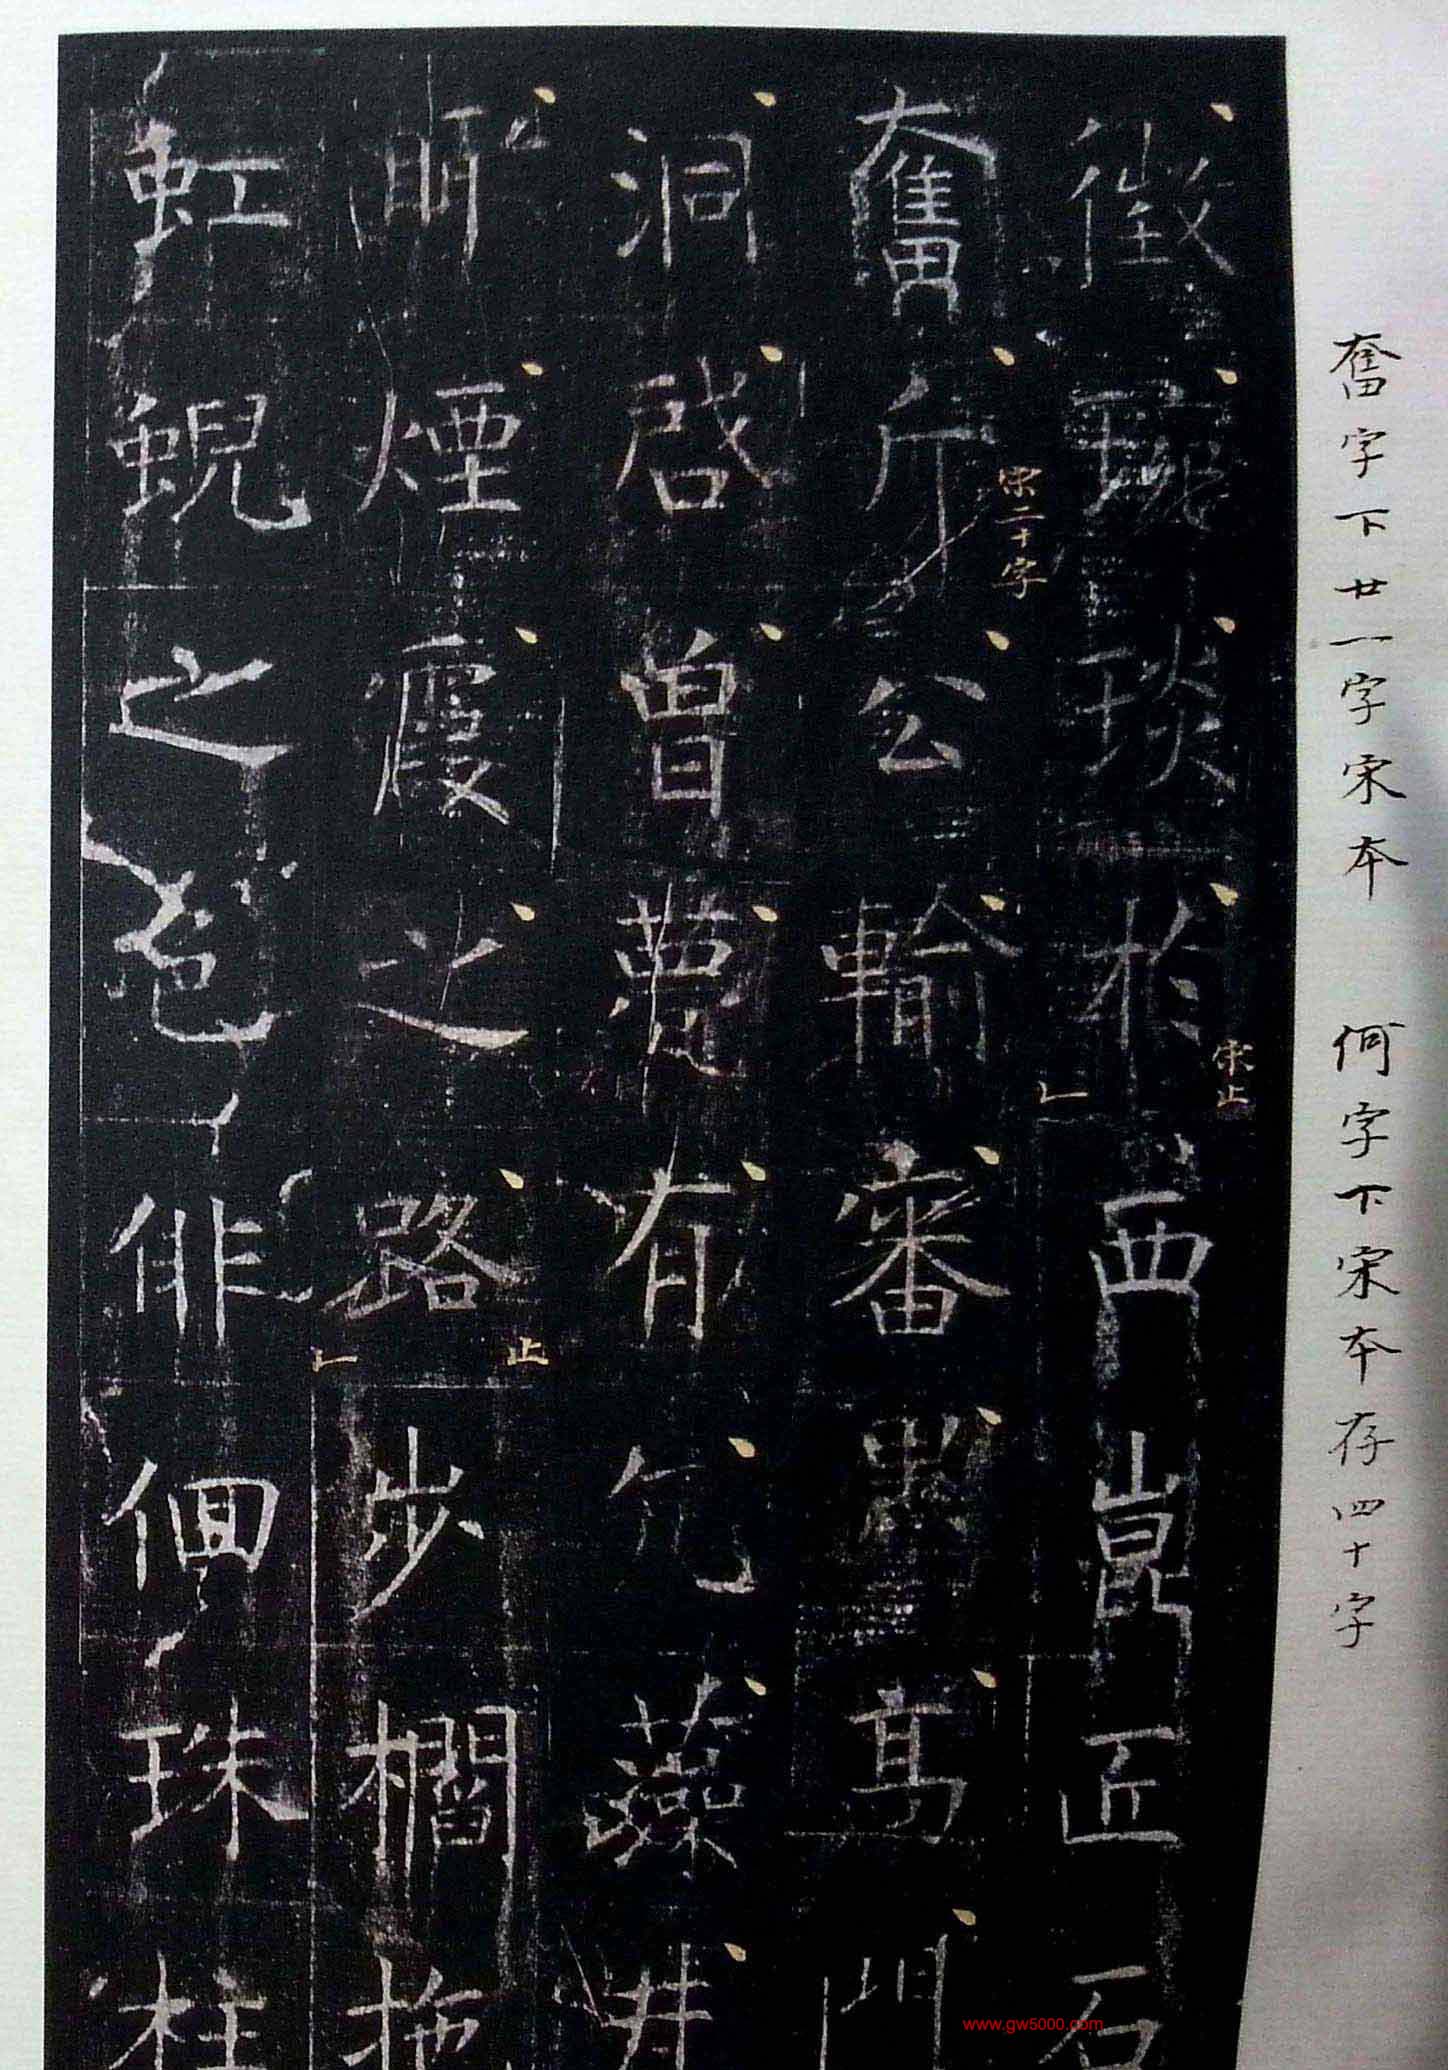 奮字下廿一字宋本 何字下宋本存四十字
徵琬琰於西崑匠石
宋止
奮斤公輸審墨高門
宋二十字
洞啓曾甍有亢藻井
昈煙霞之路步櫩拖
止
虹蜺之色俳佪珠柱
www.gw5000.com